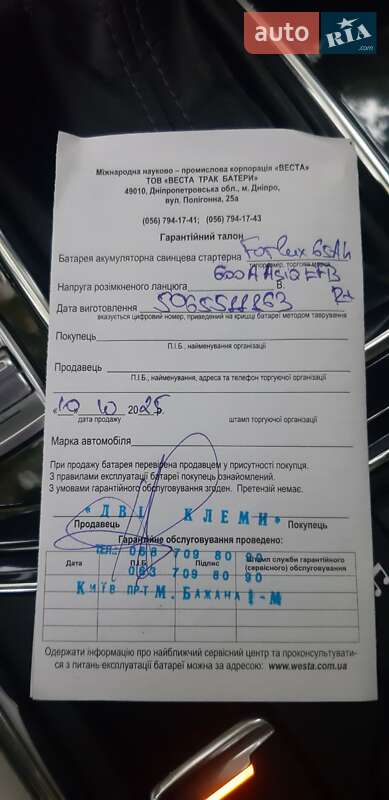 auto RIA
Міжнародна науково – промислова корпорація «ВЕСТА»
ТОВ «ВЕСТА ТРАК БАТЕРИ»
49010, Дніпропетровська обл., м. Дніпро,
вул. Полігонна, 25а
(056) 794-17-41; (056) 794-17-43
Гарантійний талон
Батарея акумуляторна свинцева стартерна Forlux 65Ah
тип, номер, торгова марка
600A ASIA EFB
Напруга розімкненого ланцюга В. R+
Дата виготовлення
вказується цифровий номер, приведений на кришці батареї методом таврування
Покупець
П.І.Б., найменування організації
Продавець
П.І.Б., найменування, адреса та телефон торгуючої організації
«10» 10 2025р.
дата продажу штамп торгуючої організації
Марка автомобіля
При продажу батарея перевірена продавцем у присутності покупця.
З правилами експлуатації батареї покупець ознайомлений.
З умовами гарантійного обслуговування згоден. Претензій немає.
«ДВІ КЛЕМИ»
Продавець Покупець
Гарантійне обслуговування проведено:
ТЕЛ.: 068 709 80 90
Дата П.І.Б. Підпис Штамп служби гарантійного
(сервісного) обслуговування
063 709 80 90
Київ пр-т М. Бажана 1-М
Одержати інформацію про найближчий сервісний центр та проконсультувати-
ся з питань експлуатації батареї можна за адресою: www.westa.com.ua